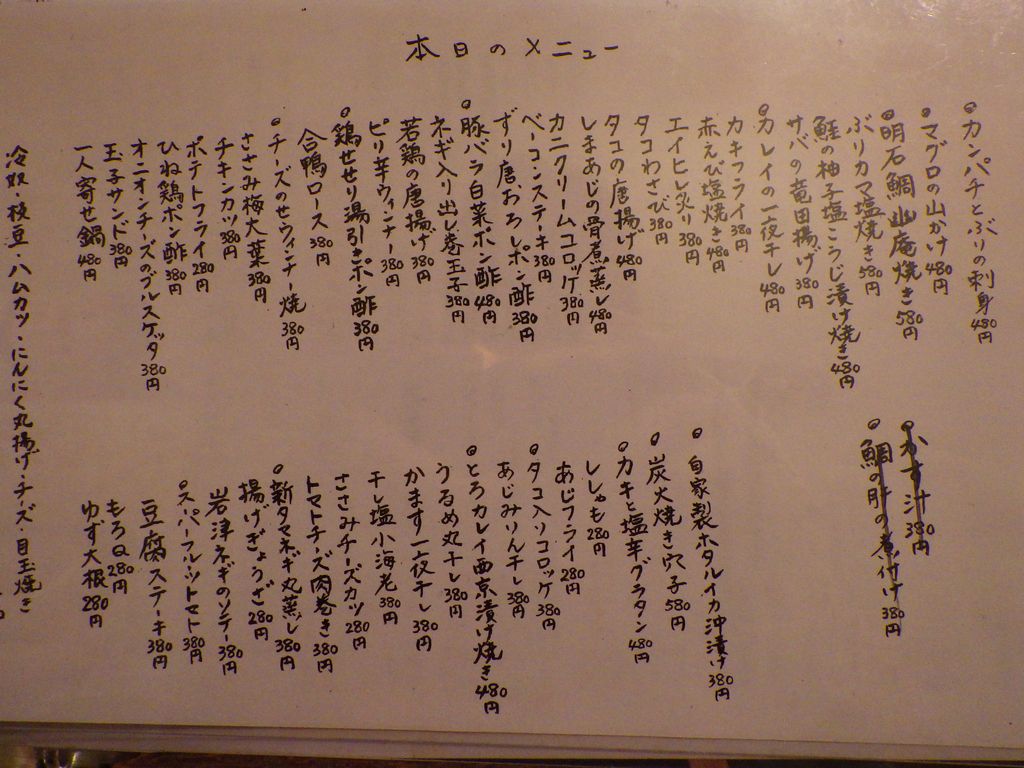 本日のメニュー
カンパチとぶりの刺身 480円
マグロの山かけ 480円
明石鯛山庵焼き 580円
ぶりカマ塩焼き 580円
鮭の柚子塩こうじ漬け焼き 480円
サバの竜田揚げ 380円
カレイの一夜干し 480円
カキフライ 380円
赤えび塩焼き 480円
エイヒレ炙り 380円
タコわさび 380円
タコの唐揚げ 480円
しまあじの骨煮蒸し 480円
カニクリームコロッケ 380円
ベーコンステーキ 380円
ずり唐おろしポン酢 380円
豚バラ白菜ポン酢 480円
ネギ入り出し巻玉子 380円
若鶏の唐揚げ 380円
ピリ辛ウィンナー 380円
鶏せせり湯引きポン酢 380円
合鴨ロース 380円
チーズのせウィンナー焼 380円
ささみ梅大葉 380円
チキンカツ 380円
ポテトフライ 280円
ひね鶏ポン酢 380円
オニオンチーズのブルスケッタ 380円
玉子サンド 380円
一人寄せ鍋 480円
かす汁 380円
鯛の肝の煮付け 380円
自家製ホタルイカ沖漬け 380円
炭火焼き穴子 580円
カキと塩辛グラタン 480円
ししゃも 280円
あじフライ 280円
タコ入りコロッケ 380円
あじみりん干し 380円
とろカレイ西京漬け焼き 480円
うるめ丸干し 380円
かます一夜干し 380円
干し塩小海老 380円
ささみチーズカツ 280円
トマトチーズ肉巻き 380円
新タマネギ丸蒸し 380円
揚げぎょうざ 280円
岩津ネギのソテー 380円
スーパーフルーツトマト 380円
豆腐ステーキ 380円
もろQ 280円
ゆず大根 280円
冷奴・枝豆・ハムカツ・にんにく丸揚げ・チーズ・目玉焼き